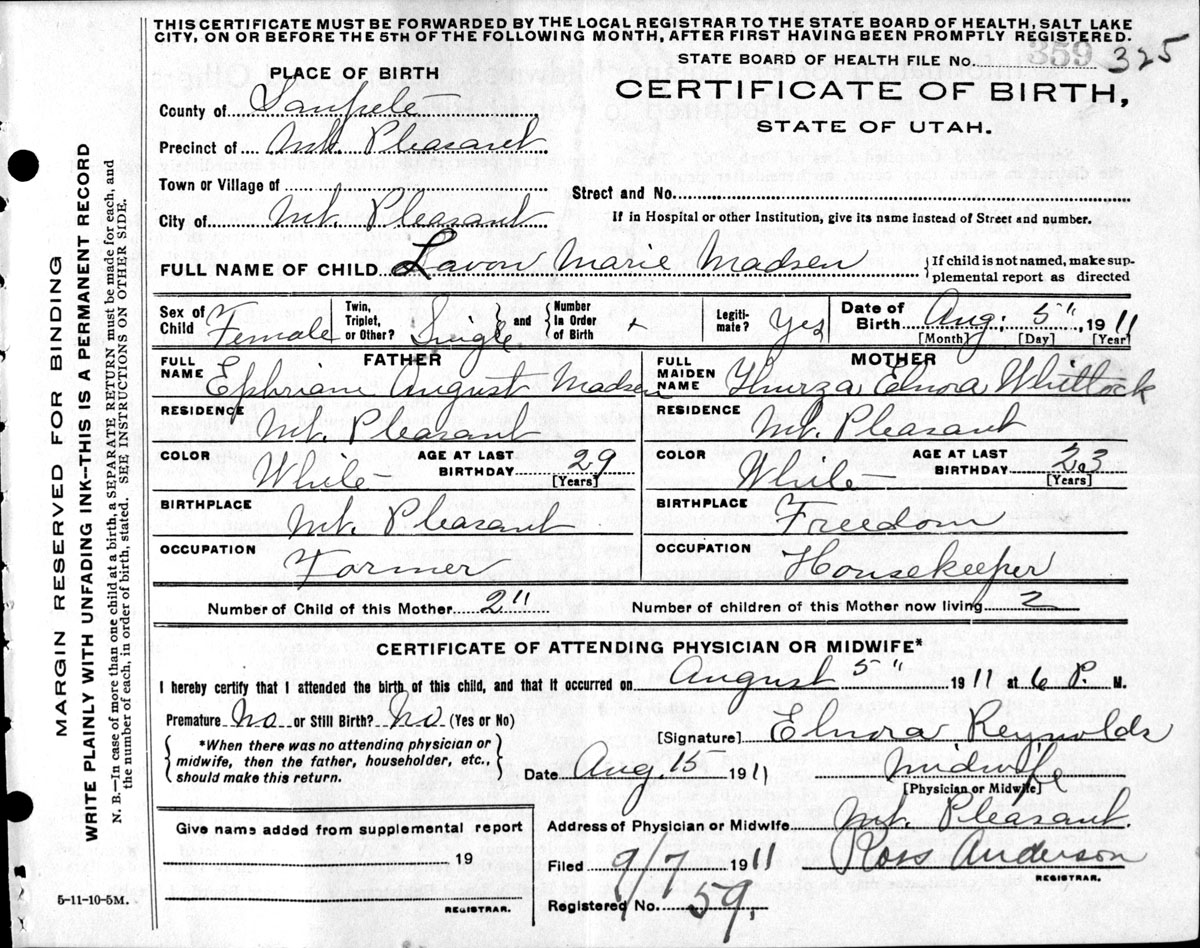 THIS CERTIFICATE MUST BE FORWARDED BY THE LOCAL REGISTRAR TO THE STATE BOARD OF HEALTH, SALT LAKE
CITY, ON OR BEFORE THE 5TH OF THE FOLLOWING MONTH, AFTER FIRST HAVING BEEN PROMPTLY REGISTERED.
STATE BOARD OF HEALTH FILE No. 359 325
PLACE OF BIRTH
CERTIFICATE OF BIRTH,
STATE OF UTAH.
County of Sanpete
Precinct of Mt. Pleasant
Town or Village of
Street and No.
City of Mt. Pleasant
If in Hospital or other Institution, give its name instead of Street and number.
FULL NAME OF CHILD Lavon Marie Madsen
{If child is not named, make sup-
plemental report as directed
Sex of Child Female
Twin, Triplet, or Other? Single
and
Number In Order of Birth +
Legiti-mate? Yes
Date of Birth Aug. 5" 1911
[Month] [Day] [Year]
FATHER
FULL NAME Ephriam August Madsen
RESIDENCE Mt. Pleasant
COLOR White
AGE AT LAST BIRTHDAY 29 [Years]
BIRTHPLACE Mt. Pleasant
OCCUPATION Farmer
MOTHER
FULL MAIDEN NAME Thurza Elnora Whitlock
RESIDENCE Mt. Pleasant
COLOR White
AGE AT LAST BIRTHDAY 23 [Years]
BIRTHPLACE Freedom
OCCUPATION Housekeeper
Number of Child of this Mother 2"
Number of children of this Mother now living 2
CERTIFICATE OF ATTENDING PHYSICIAN OR MIDWIFE*
I hereby certify that I attended the birth of this child, and that it occurred on August 5" 1911 at 6 P. M.
Premature No or Still Birth? No (Yes or No)
*When there was no attending physician or
midwife, then the father, householder, etc.,
should make this return.
[Signature] Elnora Reynolds
Date Aug. 15 1911
Midwife
[Physician or Midwife]
Give name added from supplemental report
19
REGISTRAR.
Address of Physician or Midwife Mt. Pleasant.
Filed 9/7 1911 Ross Anderson
REGISTRAR.
Registered No. 59.
5-11-10-5M.
MARGIN RESERVED FOR BINDING
WRITE PLAINLY WITH UNFADING INK--THIS IS A PERMANENT RECORD
N. B.—In case of more than one child at a birth, a SEPARATE RETURN must be made for each, and
the number of each, in order of birth, stated. SEE INSTRUCTIONS ON OTHER SIDE.